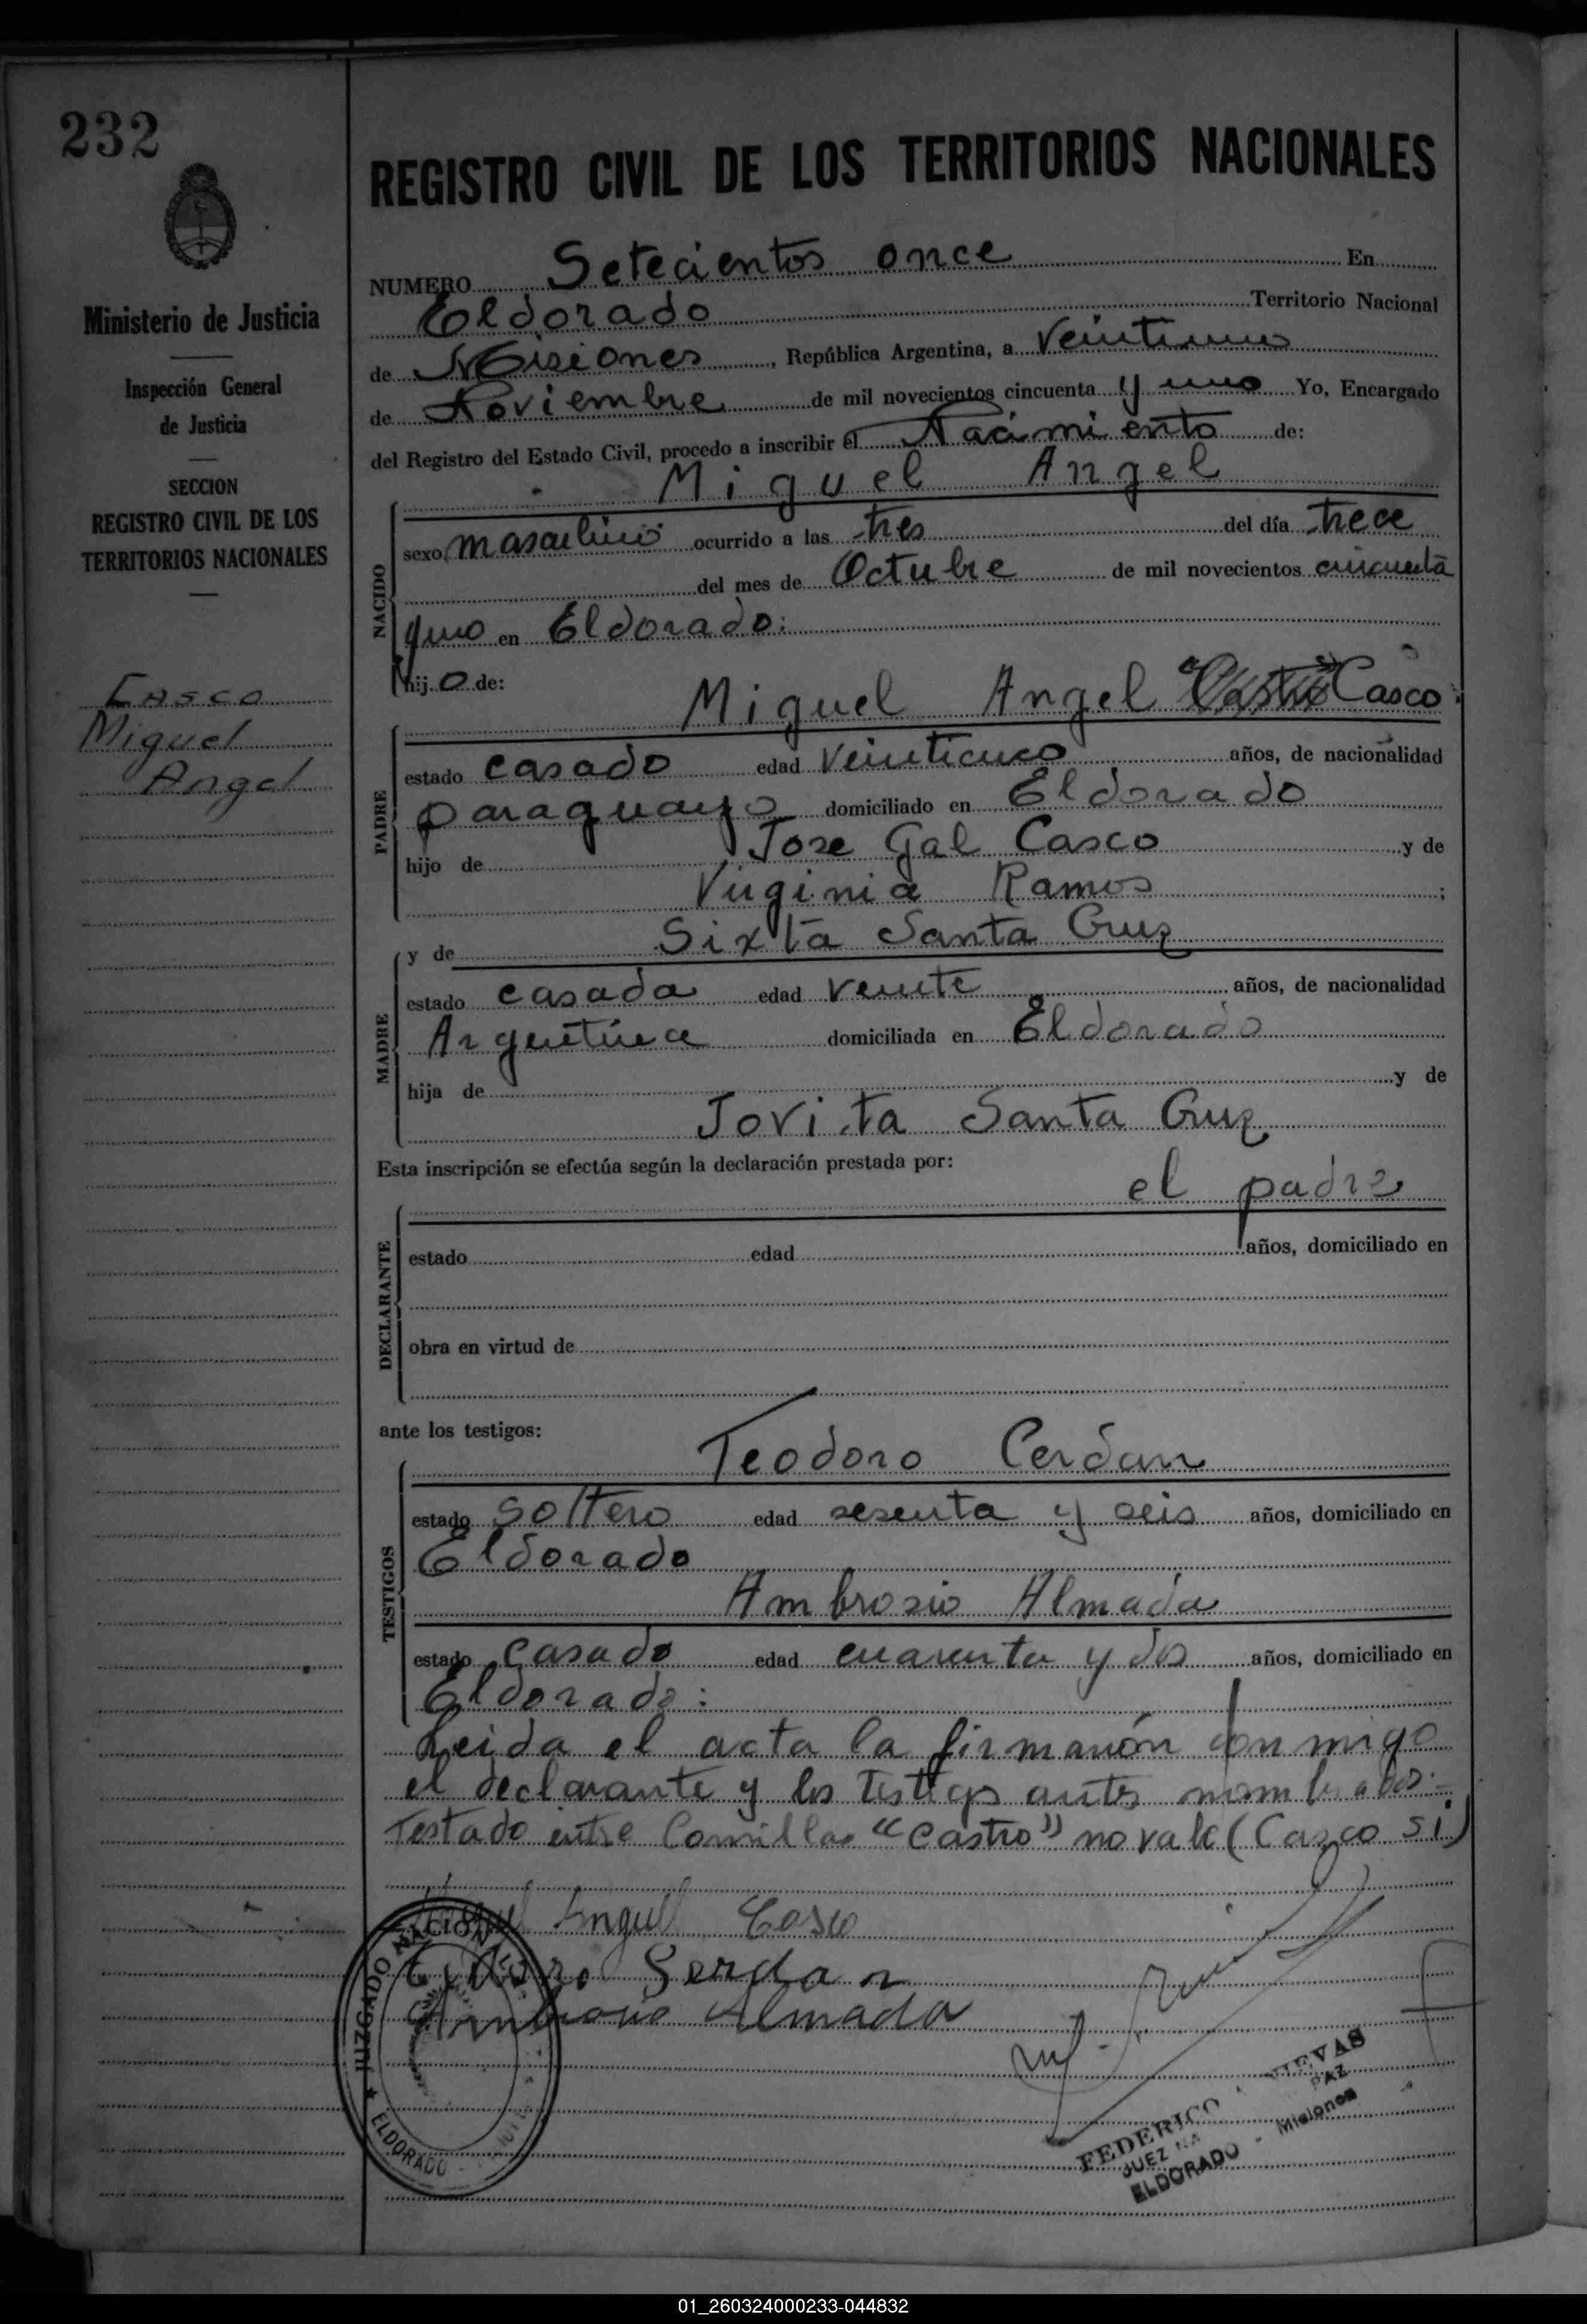 232
Ministerio de Justicia
Inspección General
de Justicia
SECCION
REGISTRO CIVIL DE LOS
TERRITORIOS NACIONALES
Casco
Miguel
Angel
REGISTRO CIVIL DE LOS TERRITORIOS NACIONALES
NUMERO Setecientos once En
Eldorado Territorio Nacional
de Misiones, República Argentina, a Veintiuno
de Noviembre de mil novecientos cincuenta y uno Yo, Encargado
del Registro del Estado Civil, procedo a inscribir el Nacimiento de:
Miguel Angel
NACIDO
sexo masculino ocurrido a las tres del día trece
del mes de Octubre de mil novecientos cincuenta
y uno en Eldorado:
hijo de:
Miguel Angel "Castro" Casco
PADRE
estado casado edad veinticinco años, de nacionalidad
paraguayo domiciliado en Eldorado
hijo de Jose Gal Casco y de
Virginia Ramos ;
y de Sixta Santa Cruz
MADRE
estado casada edad veinte años, de nacionalidad
Argentina domiciliada en Eldorado
hija de y de
Jovita Santa Cruz
Esta inscripción se efectúa según la declaración prestada por:
el padre
DECLARANTE
estado edad años, domiciliado en
obra en virtud de
ante los testigos:
Teodoro Cerdan
TESTIGOS
estado soltero edad sesenta y seis años, domiciliado en
Eldorado
Ambrosio Almada
estado casado edad cuarenta y dos años, domiciliado en
Eldorado:
Leida el acta la firmarón conmigo
el declarante y los testigos antes nombrados.-
Testado entre Comillas "Castro" no vale (Casco si)
Miguel Anguel Casco
Serdan
Ambrosio Almada
JUZGADO NACIONAL
ELDORADO
FEDERICO
JUEZ PAZ
ELDORADO - Misiones
01_260324000233-044832